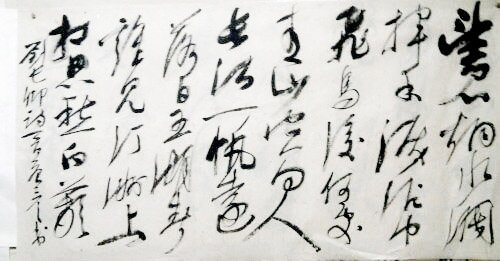 望君烟水阔
挥手泪沾巾
飞鸟没何处
青山空向人
长江一帆远
落日五湖春
谁见汀洲上
相思愁白蘋
刘长卿诗一首